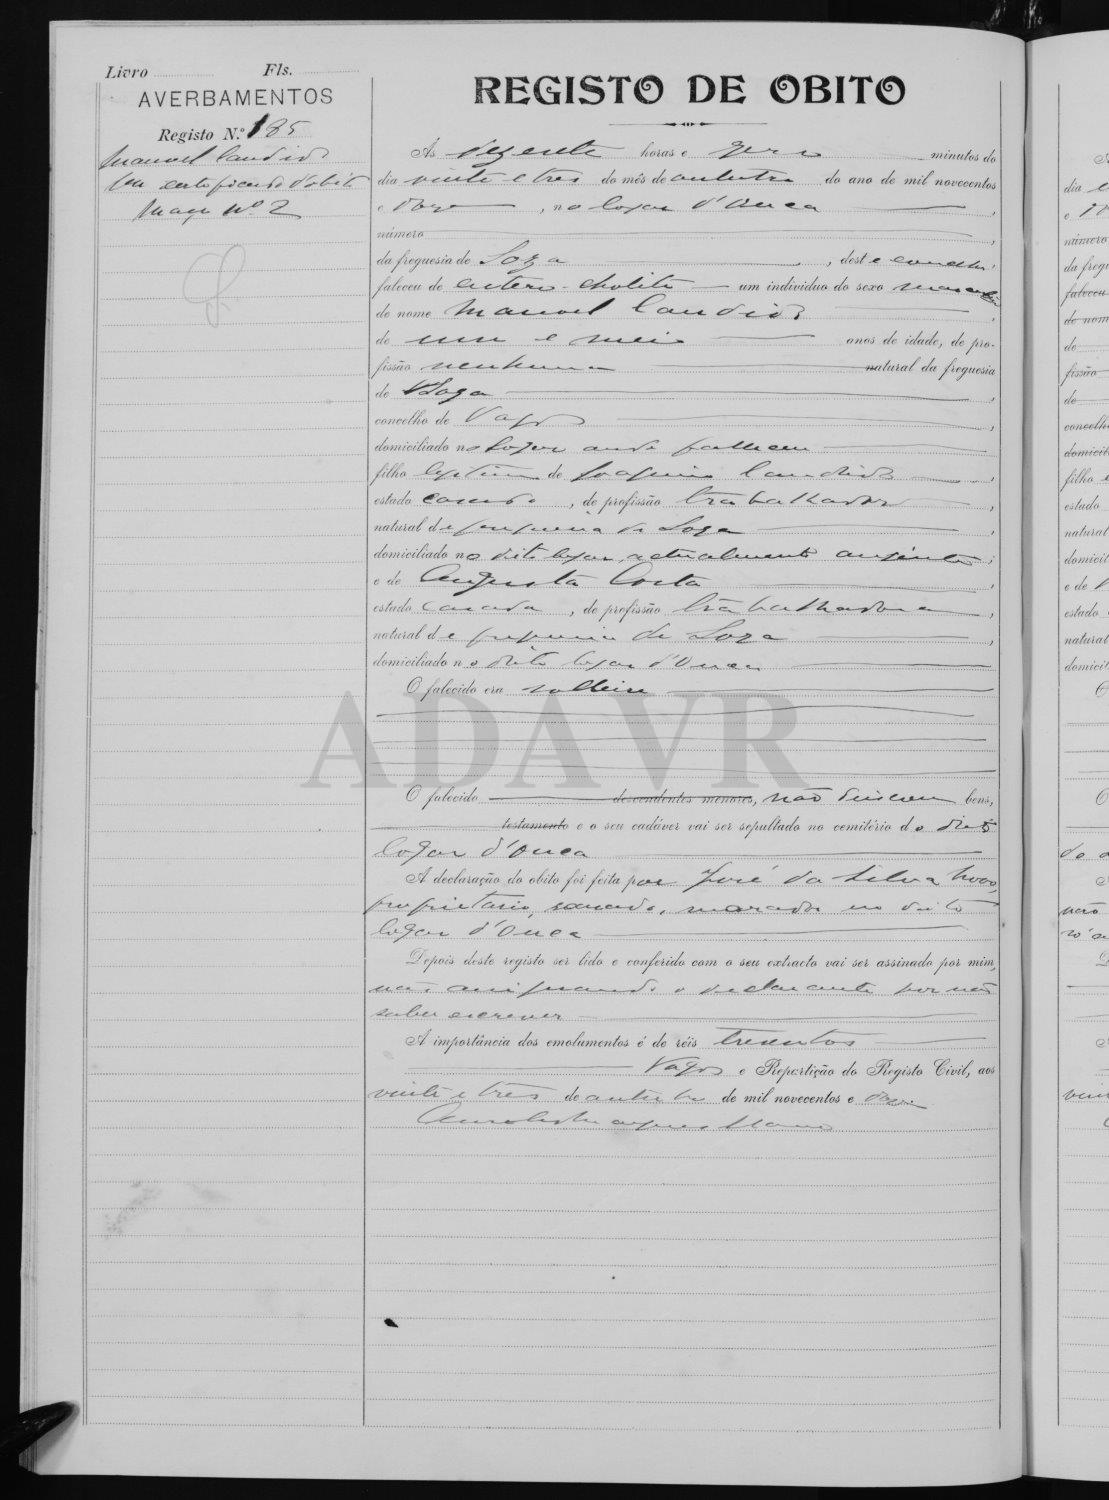 Livro Fls.
AVERBAMENTOS
Registo N.º 185
Manoel Candido
certificado d'obito
Maço nº 2
REGISTO DE OBITO
Ás dezesete horas e zero minutos do
dia vinte e tres do mês de outubro do ano de mil novecentos
e doze, no logar d'Ouca,
número
da freguesia de Soza, deste concelho
faleceu de entero-cholite um individuo do sexo masculino
de nome Manoel Candido,
de um e meio anos de idade, de pro-
fissão nenhuma natural da freguesia
de Soza,
concelho de Vagos,
domiciliado no logar onde falleceu
filho legitimo de Joaquim Candido,
estado casado, de profissão trabalhador,
natural de freguesia de Soza,
domiciliado no dito logar, actualmente ausente;
e de Augusta Costa,
estado casada, de profissão trabalhadora,
natural de freguesia de Soza,
domiciliado no dito logar d'Ouca
O falecido era solteiro
O falecido descendentes menores, não deixou bens,
testamento e o seu cadáver vai ser sepultado no cemitério do dito
logar d'Ouca
A declaração do obito foi feita por José da Silva
proprietario, casado, morador no dito
logar d'Ouca
Depois deste registo ser lido e conferido com o seu extracto vai ser assinado por mim,
não assignando o declarante por não
saber escrever
A importância dos emolumentos é de réis trezentos
Vagos e Repartição do Registo Civil, aos
vinte e tres de outubro de mil novecentos e doze.
ADAVR